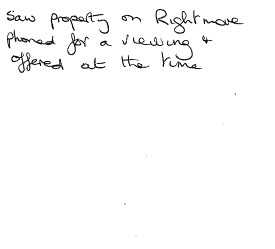 Saw property on Rightmove
phoned for a viewing +
offered at the time